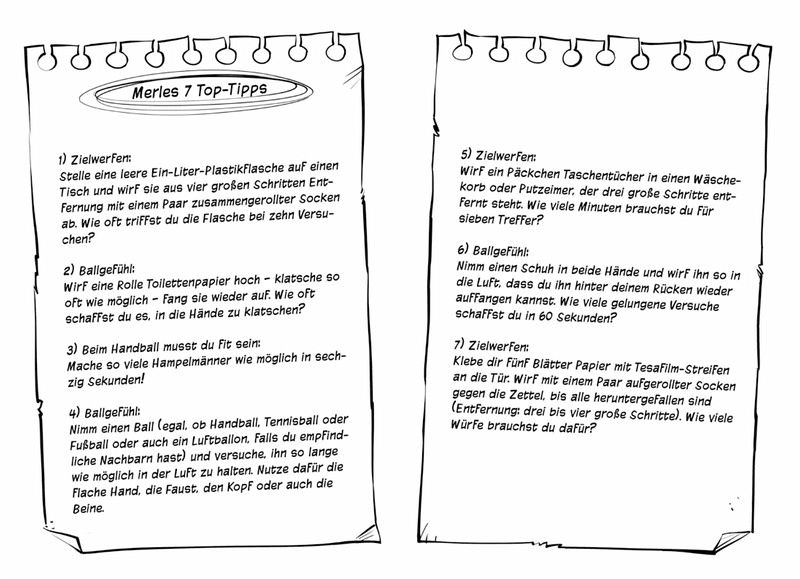 Merles 7 Top-Tipps
1) Zielwerfen:
Stelle eine leere Ein-Liter-Plastikflasche auf einen
Tisch und wirf sie aus vier großen Schritten Ent-
fernung mit einem Paar zusammengerollter Socken
ab. Wie oft triffst du die Flasche bei zehn Versu-
chen?
2) Ballgefühl:
Wirf eine Rolle Toilettenpapier hoch – klatsche so
oft wie möglich – fang sie wieder auf. Wie oft
schaffst du es, in die Hände zu klatschen?
3) Beim Handball musst du fit sein:
Mache so viele Hampelmänner wie möglich in sech-
zig Sekunden!
4) Ballgefühl:
Nimm einen Ball (egal, ob Handball, Tennisball oder
Fußball oder auch ein Luftballon, falls du empfind-
liche Nachbarn hast) und versuche, ihn so lange
wie möglich in der Luft zu halten. Nutze dafür die
flache Hand, die Faust, den Kopf oder auch die
Beine.
5) Zielwerfen:
Wirf ein Päckchen Taschentücher in einen Wäsche-
korb oder Putzeimer, der drei große Schritte ent-
fernt steht. Wie viele Minuten brauchst du für
sieben Treffer?
6) Ballgefühl:
Nimm einen Schuh in beide Hände und wirf ihn so in
die Luft, dass du ihn hinter deinem Rücken wieder
auffangen kannst. Wie viele gelungene Versuche
schaffst du in 60 Sekunden?
7) Zielwerfen:
Klebe dir fünf Blätter Papier mit Tesafilm-Streifen
an die Tür. Wirf mit einem Paar aufgerollter Socken
gegen die Zettel, bis alle heruntergefallen sind
(Entfernung: drei bis vier große Schritte). Wie viele
Würfe brauchst du dafür?